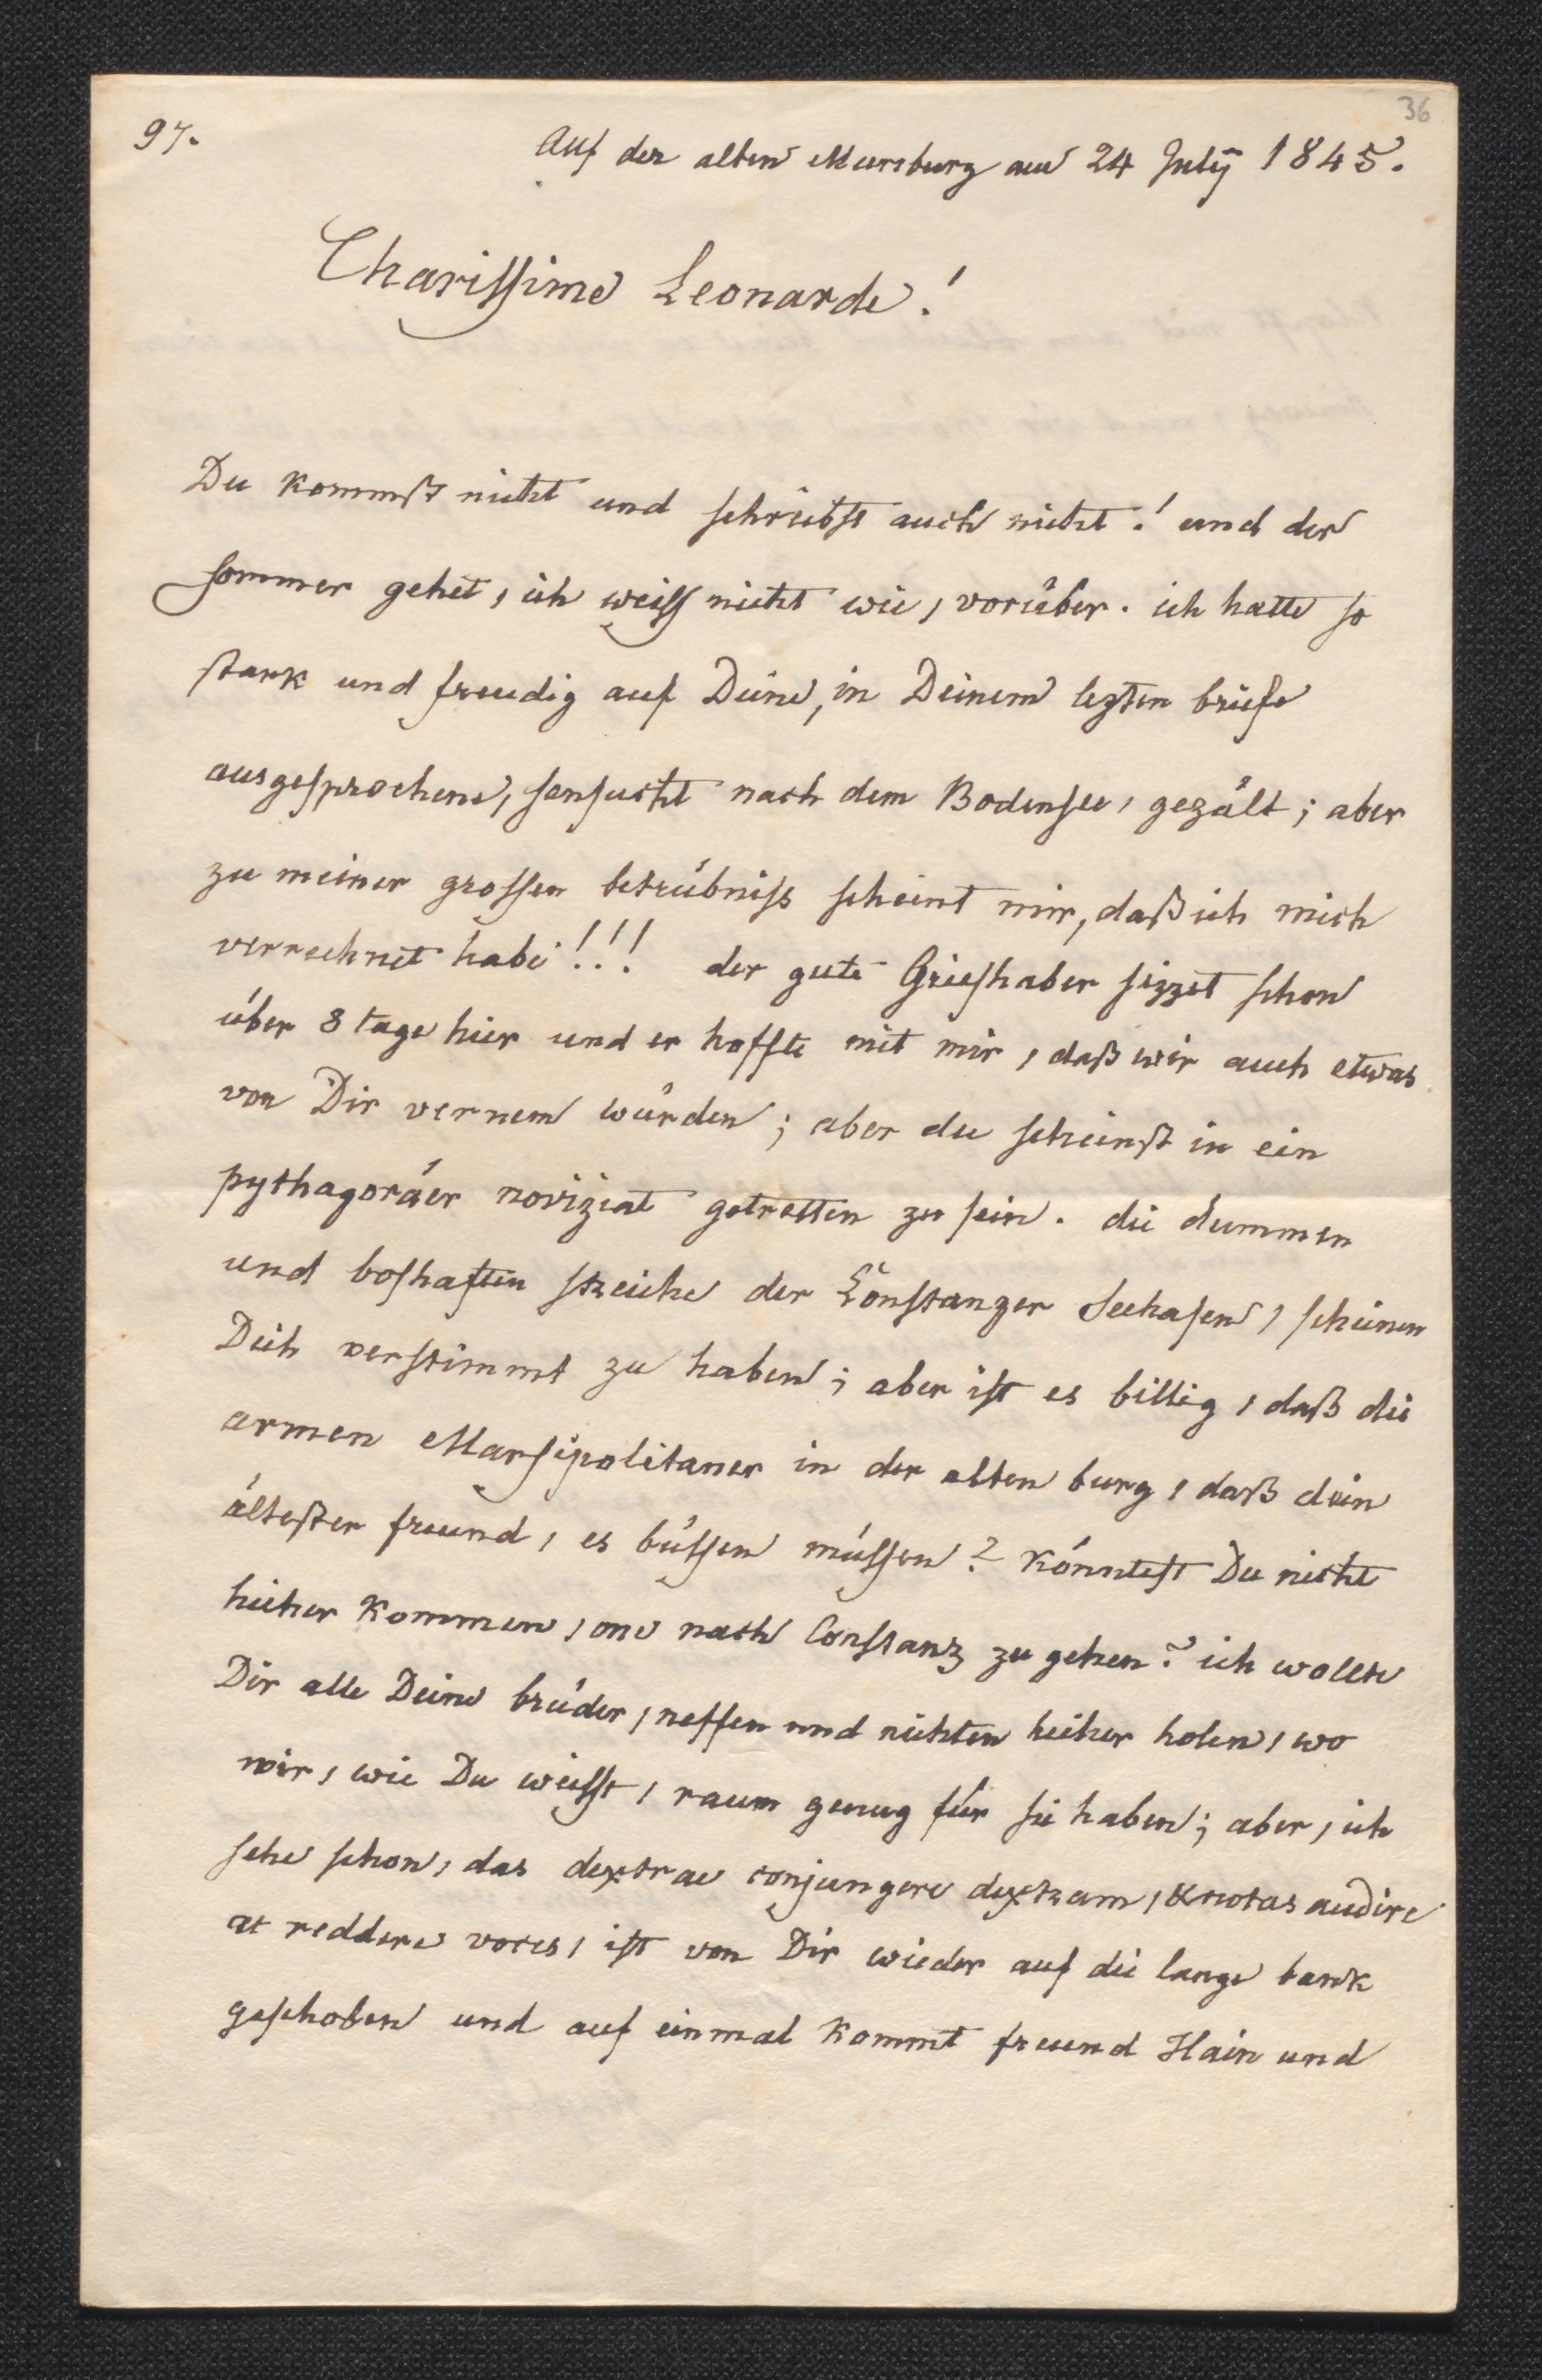 36
97.
Auf der alten Mersburg am 24 July 1845.
Charissime Leonarde!
Du kommst nicht und schreibst auch nicht! und der
sommer gehet, ich weiss nicht wie, vorüber. ich hatte so
stark und freudig auf Deine, in Deinem lezten briefe
ausgesprochene, sensucht nach dem Bodensee, gezält; aber
zu meiner grossen betrübniss scheint mir, daß ich mich
verrechnet habe!!! der gute Grieshaber sizzet schon
über 8 tage hier und er hoffte mit mir, daß wir auch etwas
von Dir vernem würden; aber du scheinst in ein
pythagoräer noviziat getretten zu sein. die dummen
und boshaften streiche der Constanzer Seehasen, scheinen
Dich verstimmt zu haben; aber ist es billig, daß die
armen Marsipolitaner in der alten burg, daß dein
ältester freund, es büssen müssen? könntest Du nicht
hieher kommen, one nach Constanz zu gehen? ich wollte
Dir alle Deine brüder, neffen und nichten hieher holen, wo
wir, wie Du weisst, raum genug für sie haben; aber, ich
sehe schon, das dextrae conjungere dextram, & notas audire
et reddere voces, ist von Dir wieder auf die lange bank
geschoben und auf einmal kommt freund Hain und